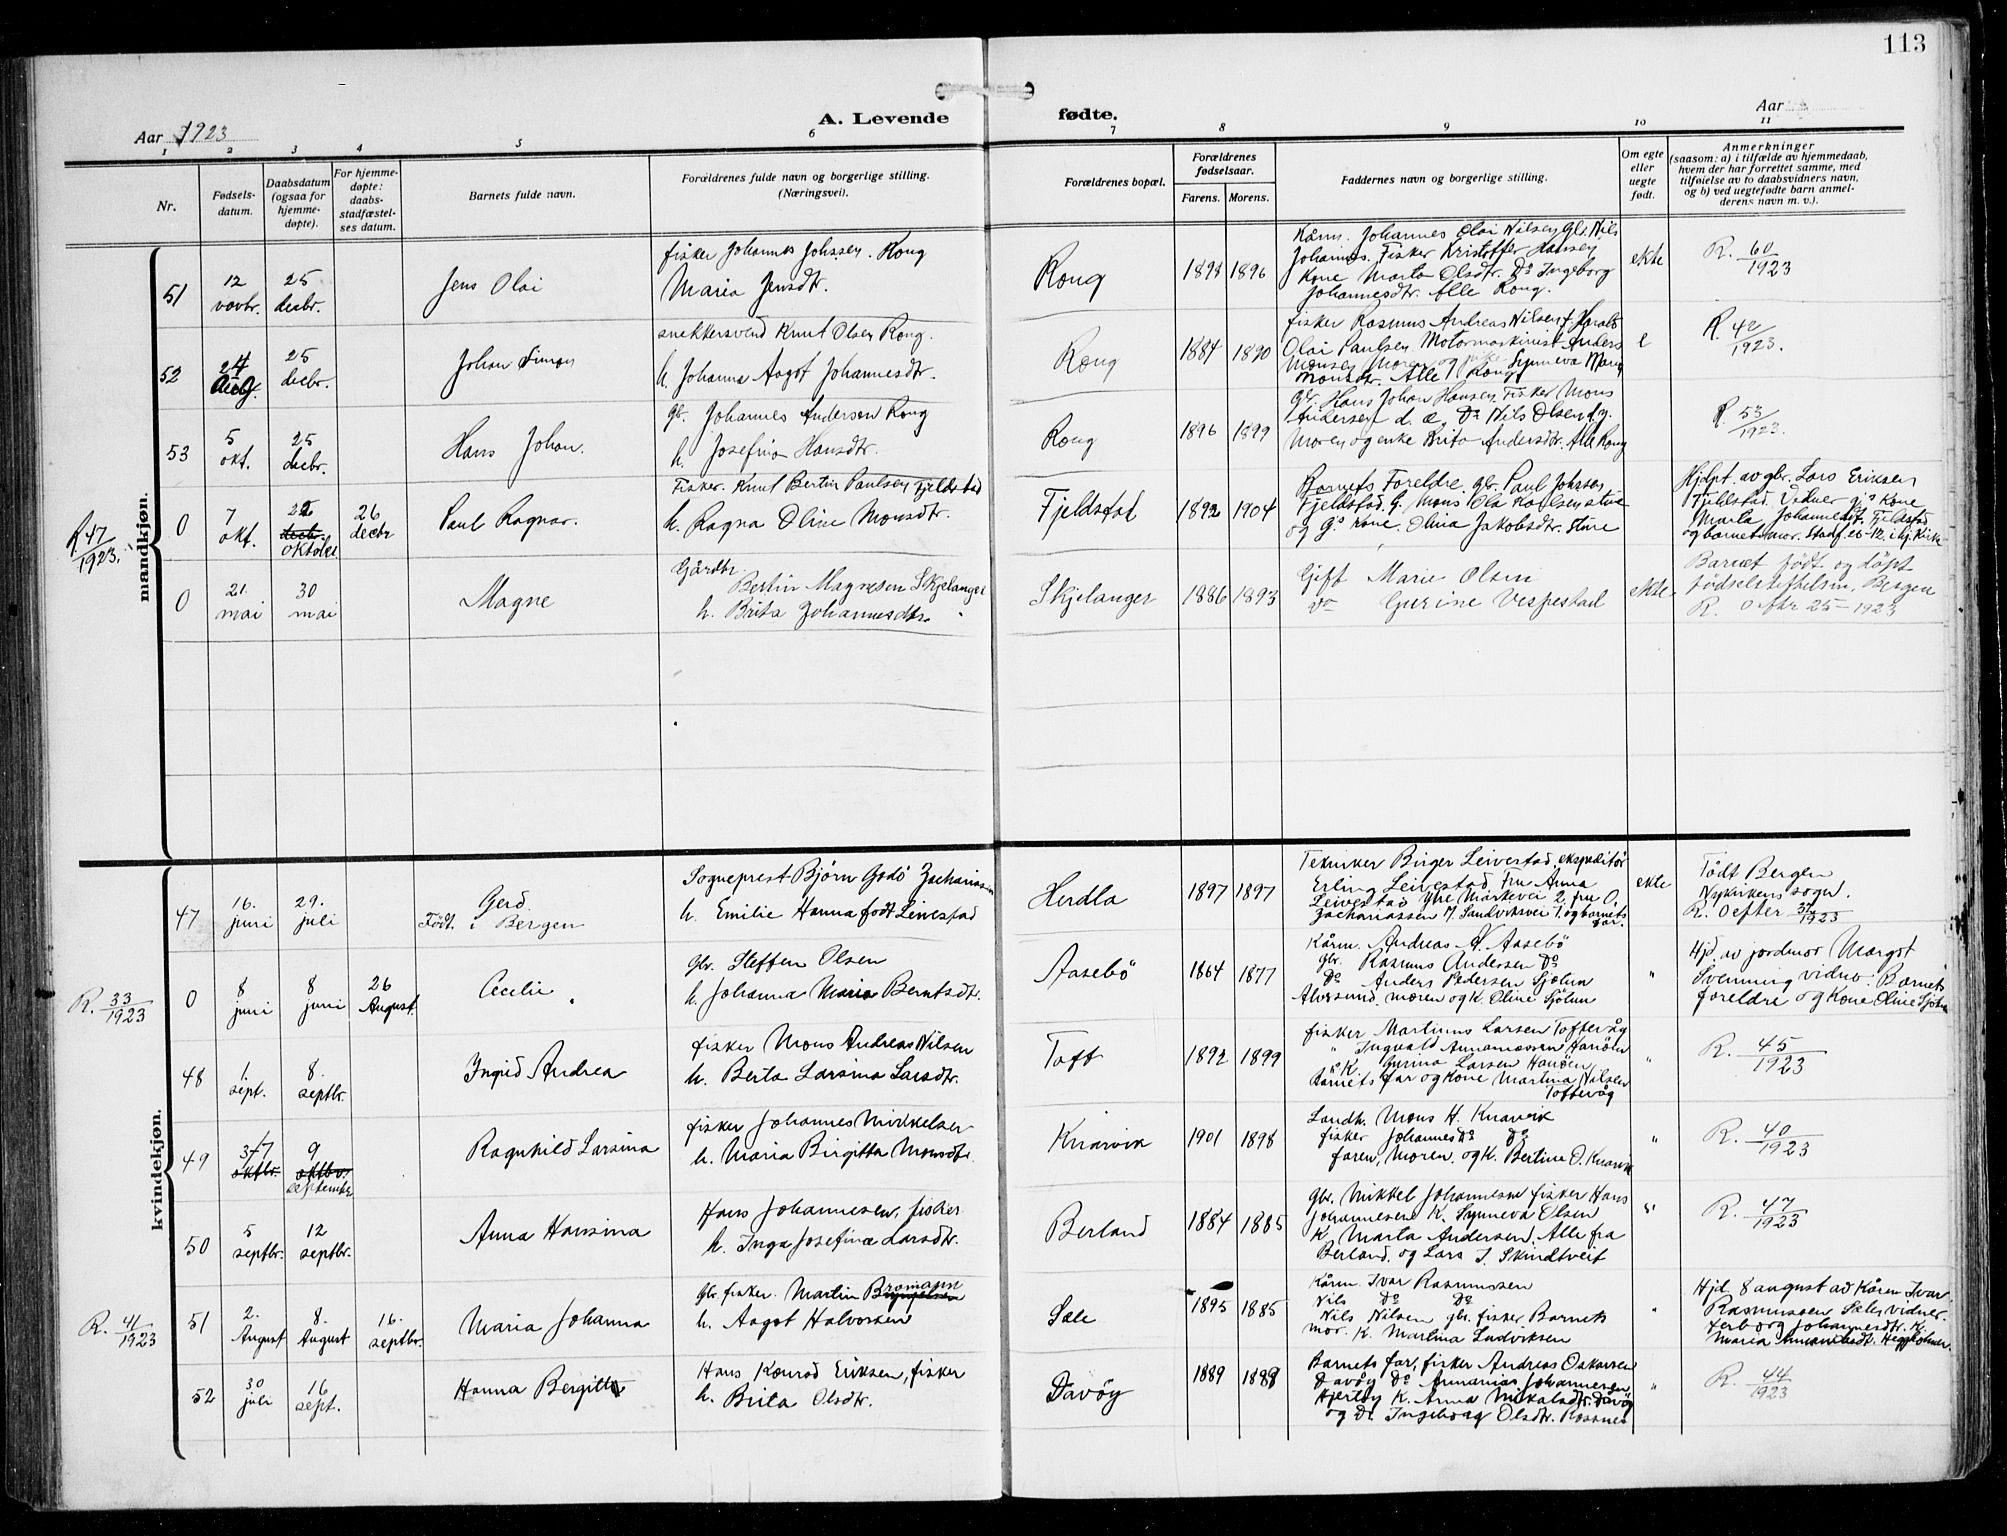 113
Aar 1923
A. Levende fødte.
Aar
1 2 3 4 5 6 7 8 9 10 11
Nr.
Fødsels-
datum.
Daabsdatum
(ogsaa for
hjemme-
døpte).
For hjemme-
døpte:
daabs-
stadfæstel-
ses datum.
Barnets fulde navn.
Forældrenes fulde navn og borgerlige stilling.
(Næringsvei).
Forældrenes bopæl.
Forældrenes
fødselsaar.
Farens. Morens.
Faddernes navn og borgerlige stilling.
Om egte
eller
uegte
født.
Anmerkninger
(saasom: a) i tilfælde av hjemmedaab,
hvem der har forrettet samme, med
tilføielse av to daabsvidners navn,
og b) ved uegtefødte barn anmel-
derens navn m. v.).
mandkjøn.
51
12
novbr.
25
decbr.
Jens Olai
fisker Johannes Johssen. Rong
Maria Jensdtr.
Rong
1898 1896
Kårm. Johannes Olai Nilsen Gbr. Nils
Johannes. Fisker Kristoffer Hansen
Kone Marta Olsdtr. Do Ingeborg
Johannesdtr. Alle Rong.
ekte
R. 60/1923
52
24
25
decbr.
Johan Simon
snekkersvend Knut Olsen Rong.
h. Johanna Aagot Johannesdtr.
Rong
1884 1890
fisker Rasmus Andreas Nilsen
Olai Paulsen Motormaskinist Anders
Monsen Moren og Synneva
Monsdtr. Alle Rong
e
R. 42/1923.
53
5
okt.
25
decbr.
Hans Johan.
Gb. Johannes Andersen Rong
h. Josefina Hansdtr.
Rong
1896 1899
Gbr. Hans Johan Hansen, Fisker Mons
Andersen d. æ. Do Nils Olsen d.y.
Moren og enke Brita Andersdtr. Alle Rong
R. 53/1923.
R 47/1923.
0
7
okt.
decb.
oktober
26
decbr
Paul Ragnar.
Fisker. Knut Bertin Paulsen Fjeldstad
h. Ragna Oline Monsdtr.
Fjeldstad
1892 1904
Barnets Foreldre. Gb. Paul Johssen
Fjeldstad. G. Mons Ola
og G's kone. Olina Jakobsdtr.
Hjdpt. av gbr. Lars Eriksen
Fjeldstad. Vidner g's Kone
Marta Johannesdt. Fjeldstad
og barnets mor. Stadf. 26-12. i
0
21.
mai
30
mai
Magne
Gårdbr.
Bertin Magnesen Skjelanger
h. Brita Johannesdtr.
Skjelanger
1886 1893
Gift Marie Olsen
Do Gurine Vespestad
ekte.
Barnet født og døpt
fødselsstiftelsen, Bergen
R. 0 efter 25-1923
kvindekjøn.
47
16.
juni
29.
juli
Gerd.
Født. i Bergen
Sogneprest Bjørn Godø Zachariassen
h. Emilie Hanna født Leivestad
Herdla
1897 1897
Tekniker Birger Leivestad, ekspeditør
Erling Leivestad. Fru Anna
Leivestad Yttre Markevei 2, fru O.
Zachariassen N. Sandviksvei 1. og barnets
far.
ekte
Født Bergen
Nykirkens sogn.
R. 0 efter 37/1923
R. 33/1923
0
8
juni
8
juni
26
August
Cecilie
Gbr. Steffen Olsen
h. Johanna Maria Berntsdtr.
Aasebö
1864 1877
Kårm. Andreas A. Aasebö
gbr. Rasmus Andersen Do
Do Anders Pedersen Sjötun
Alversund. moren og K. Oline Sjötun
"
Hjd. av jordmor Margot
Svenning vidne: Barnets
foreldre og Kone Oline Sjötun
48
1.
sept.
8.
septbr.
Ingrid Andrea
fisker Mons Andreas Nilsen
h. Berta Larsina Larsdtr.
Toft
1892 1899
fisker Martinus Larsen Toftevåg
" Ingvald Annaniassen
" K. Gurina Larsen
Barnets far og Kone Martina Nilsen
Toftevåg
"
R. 45/1923
49
31/7
oktbr.
9
oktbr.
september
Ragnhild Larsina
fisker Johannes Mikkelsen
h. Maria Birgitta Monsdtr.
Knarvik
1901 1898
Landh. Mons H. Knarvik
fisker Johannes Do Do
faren, moren, og K. Bertine O. Knarvik
"
R. 40/1923
50
5
septbr.
12
septbr.
Anna Hansina
Hans Johannesen, fisker
h. Inga Josefine Larsdtr.
Berland
1884 1885
gbr. Mikkel Johannesen fisker Hans
Johannesen K. Synneva Olsen
K. Marta Andersen. Alle fra
Berland. og Lars J. Skindtveit
"
R. 47/1923
R. 41/1923
51
2.
August
8.
August
16.
septbr.
Maria Johanna
Gbr. fisker. Martin Bromann
h. Aagot Halvorsen
Sæle
1895 1885
Kårm. Ivar Rasmussen
Nils Do Do
Nils Nilsen gbr. fisker. Barnets
mor. K. Martina Ludviksen
"
Hjd. 8 august av Kårm Ivar
Rasmussen Sæle, vidner.
Ferborg Johannesdtr. K.
Maria
52
30
juli
16
sept.
Hanna Bergitte
Hans Konrad Eriksen, fisker
h. Brita Olsdtr.
Davöy
1889 1889
Barnets far, fisker Andreas Oskarsen
Davöy Do Annanias Johannesen
Hjertöy K. Anna Mikalsdtr. Davöy
og Do. Ingeborg Olsdtr. Rossnes
"
R. 44/1923